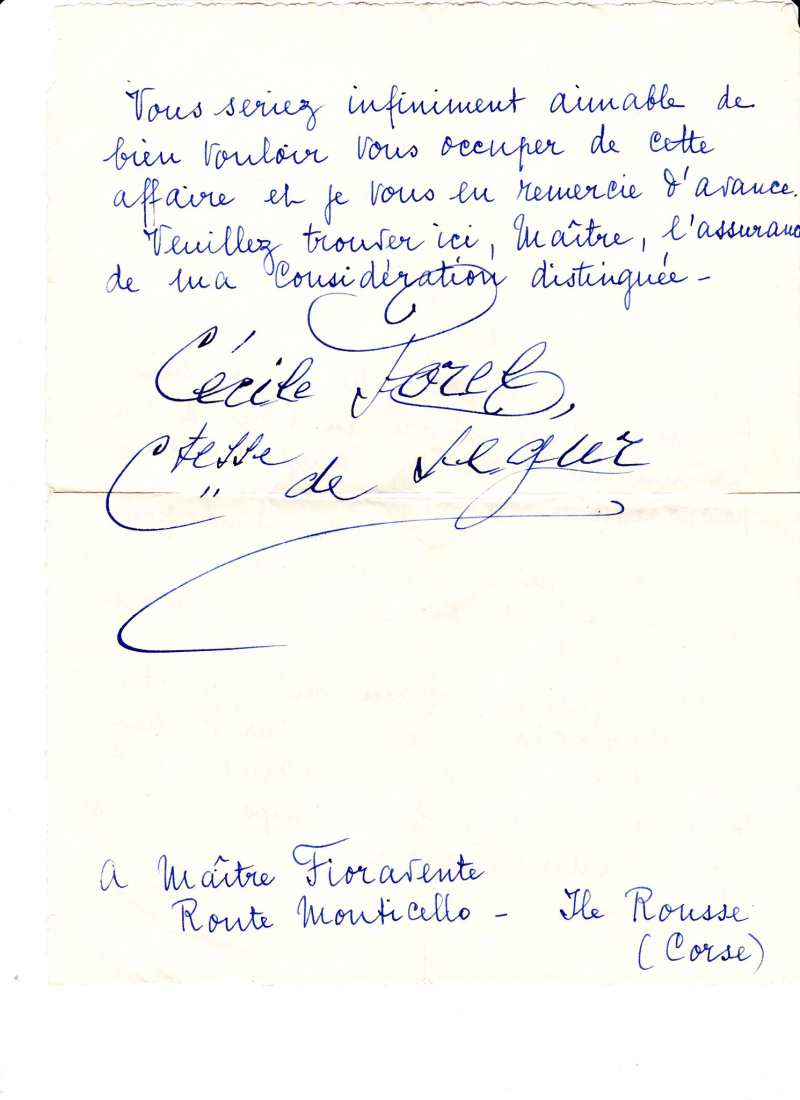 Vous seriez infiniment aimable de
bien vouloir vous occuper de cette
affaire et je vous en remercie d'avance.
Veuillez trouver ici, Maître, l'assuranc
de ma considération distinguée -
Cécile Sorel,
Ctesse de Segur
A Maître Fioravente
Route Monticello - Ile Rousse
(Corse)